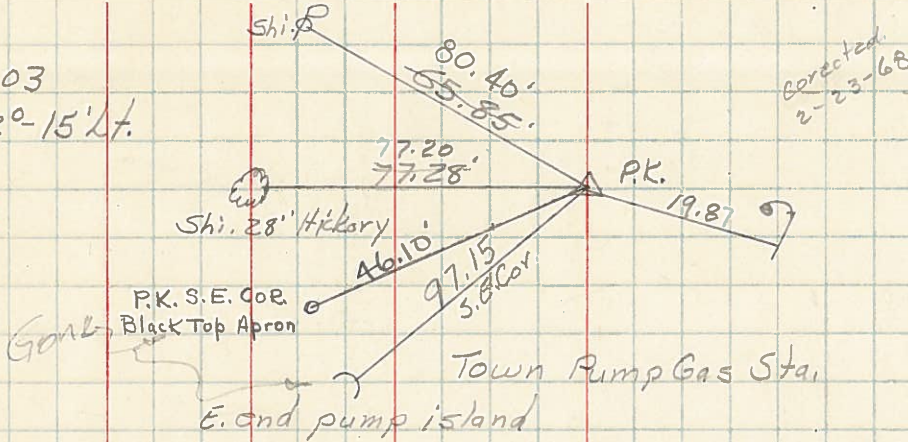 Shi.
80.40'
55.85'
corected.
2-23-68
03
2°-15' Lt.
77.20
77.28'
P.K.
19.87
Shi. 28" Hickory
46.10'
97.15
S.E. Cor.
P.K. S.E. COR.
Black Top Apron
Gone
Town Pump Gas Sta.
E. end pump island